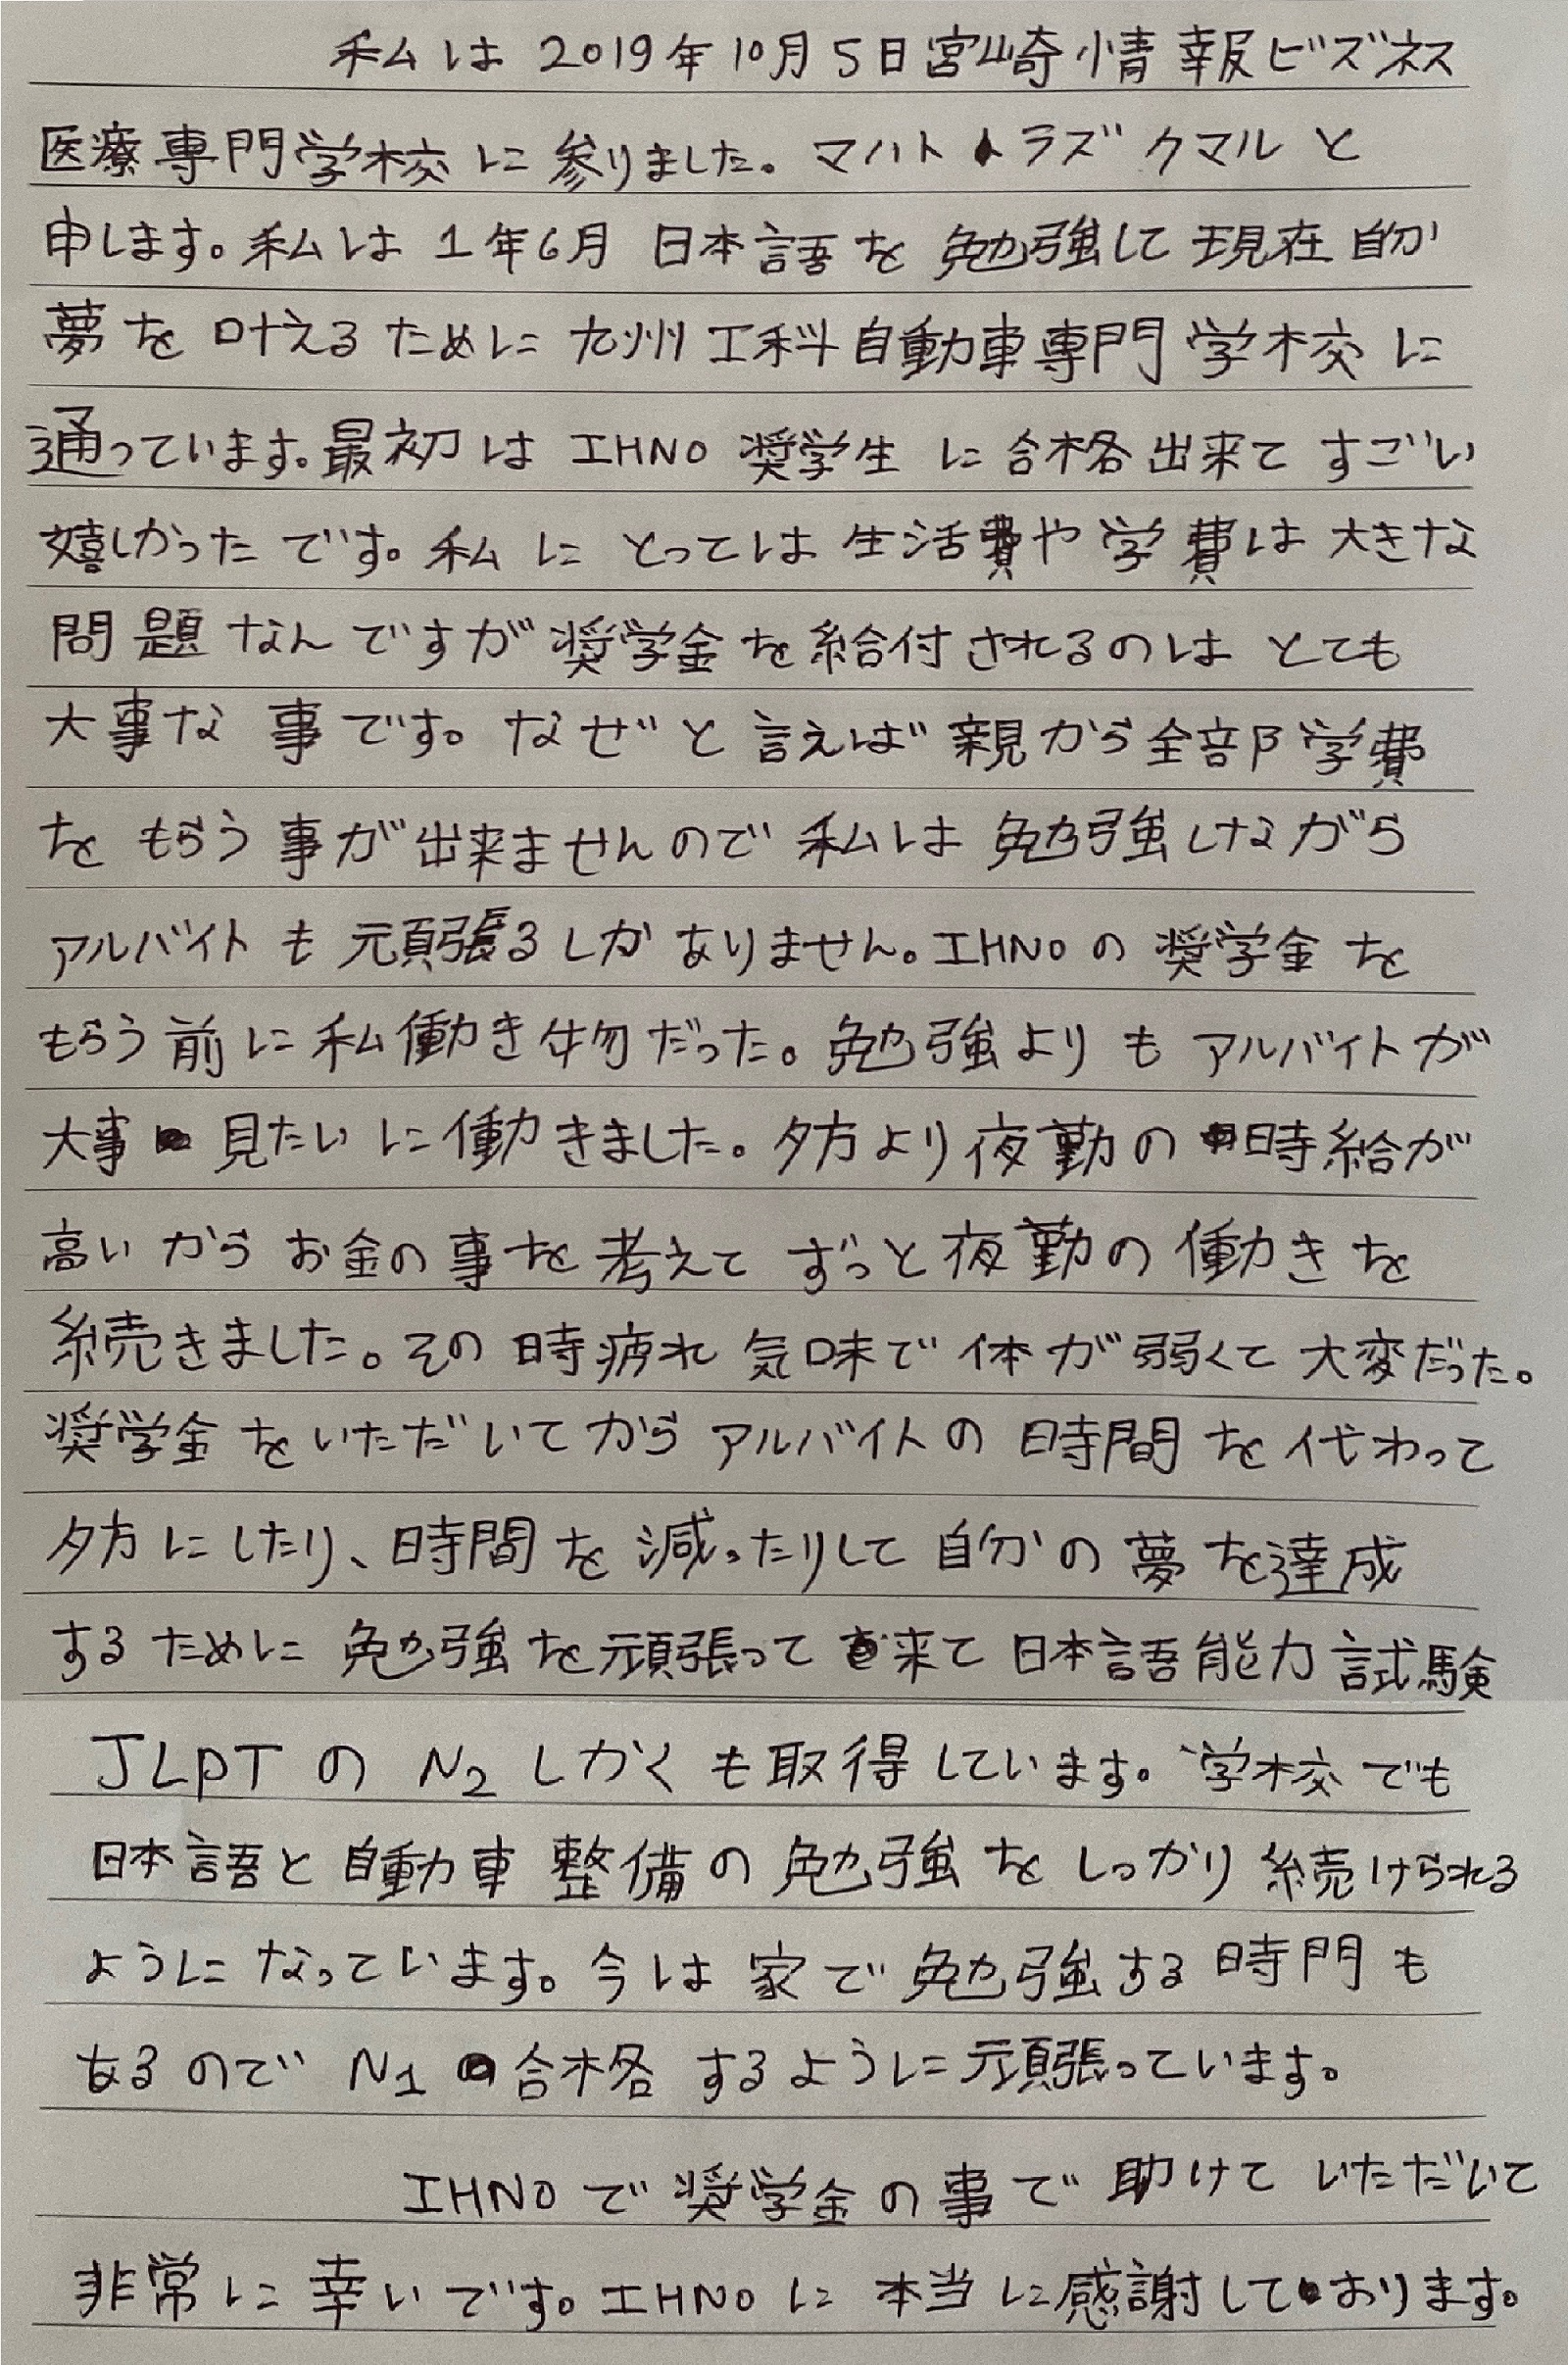 私は2019年10月5日宮崎情報ビズネス
医療専門学校に参りました。マハト ラズ クマルと
申します。私は1年6月 日本語を勉強して現在自分
夢を叶えるために九州工科自動車専門学校に
通っています。最初はIHNO奨学生に合格出来てすごい
嬉しかったです。私にとっては生活費や学費は大きな
問題なんですが奨学金を給付されるのはとても
大事な事です。なぜと言えば親から全部学費
をもらう事が出来ませんので私は勉強しながら
アルバイトも頑張るしかありません。IHNOの奨学金を
もらう前に私働き物だった。勉強よりもアルバイトが
大事見たいに働きました。夕方より夜勤の時給が
高いからお金の事を考えてずっと夜勤の働きを
続きました。その時疲れ気味で体が弱くて大変だった。
奨学金をいただいてからアルバイトの時間を代わって
夕方にしたり、時間を減ったりして自分の夢を達成
するために勉強を頑張って来て日本語能力試験
JLPTのN2しかくも取得しています。学校でも
日本語と自動車整備の勉強をしっかり続けられる
ようになっています。今は家で勉強する時門も
あるのでN1合格するように頑張っています。
IHNOで奨学金の事で助けていただいて
非常に幸いです。IHNOに本当に感謝しております。